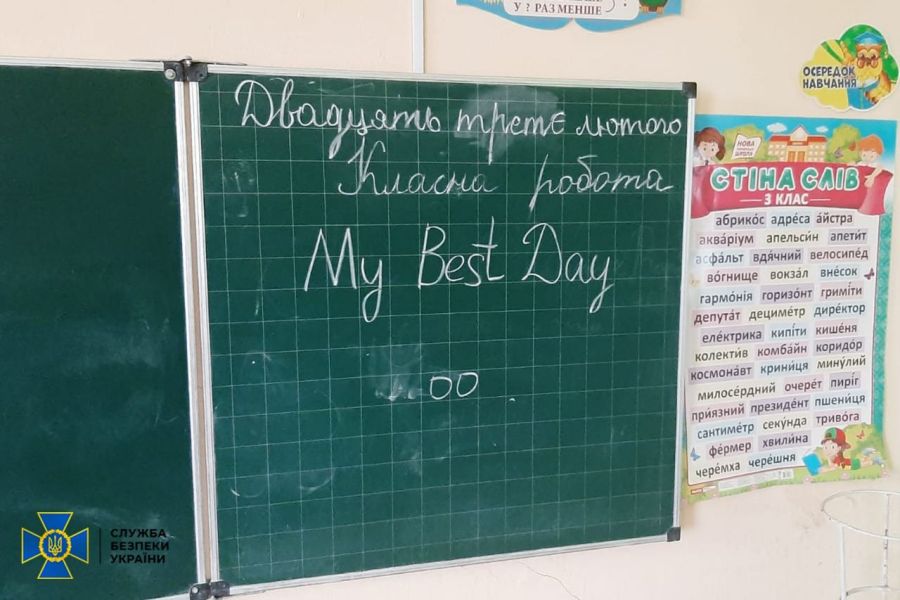 У ? РАЗ МЕНШЕ
Двадцять третє лютого
Класна робота
My Best Day
оо
ОСЕРЕДОК
НАВЧАННЯ
НОВА
ШКОЛА
СТІНА СЛІВ
3 КЛАС
абрико́с адре́са а́йстра
аква́ріум апельси́н апети́т
асфа́льт вдя́чний велосипе́д
во́гнище вокза́л вне́сок
гармо́нія горизо́нт гримі́ти
депута́т дециме́тр дире́ктор
еле́ктрика кипі́ти кише́ня
колекти́в комба́йн коридо́р
космона́вт крини́ця мину́лий
милосе́рдний очере́т пирі́г
при́язний президе́нт пшени́ця
сантиме́тр секу́нда триво́га
фе́рмер хвили́на
чере́мха чере́шня
СЛУЖБА
БЕЗПЕКИ
УКРАЇНИ